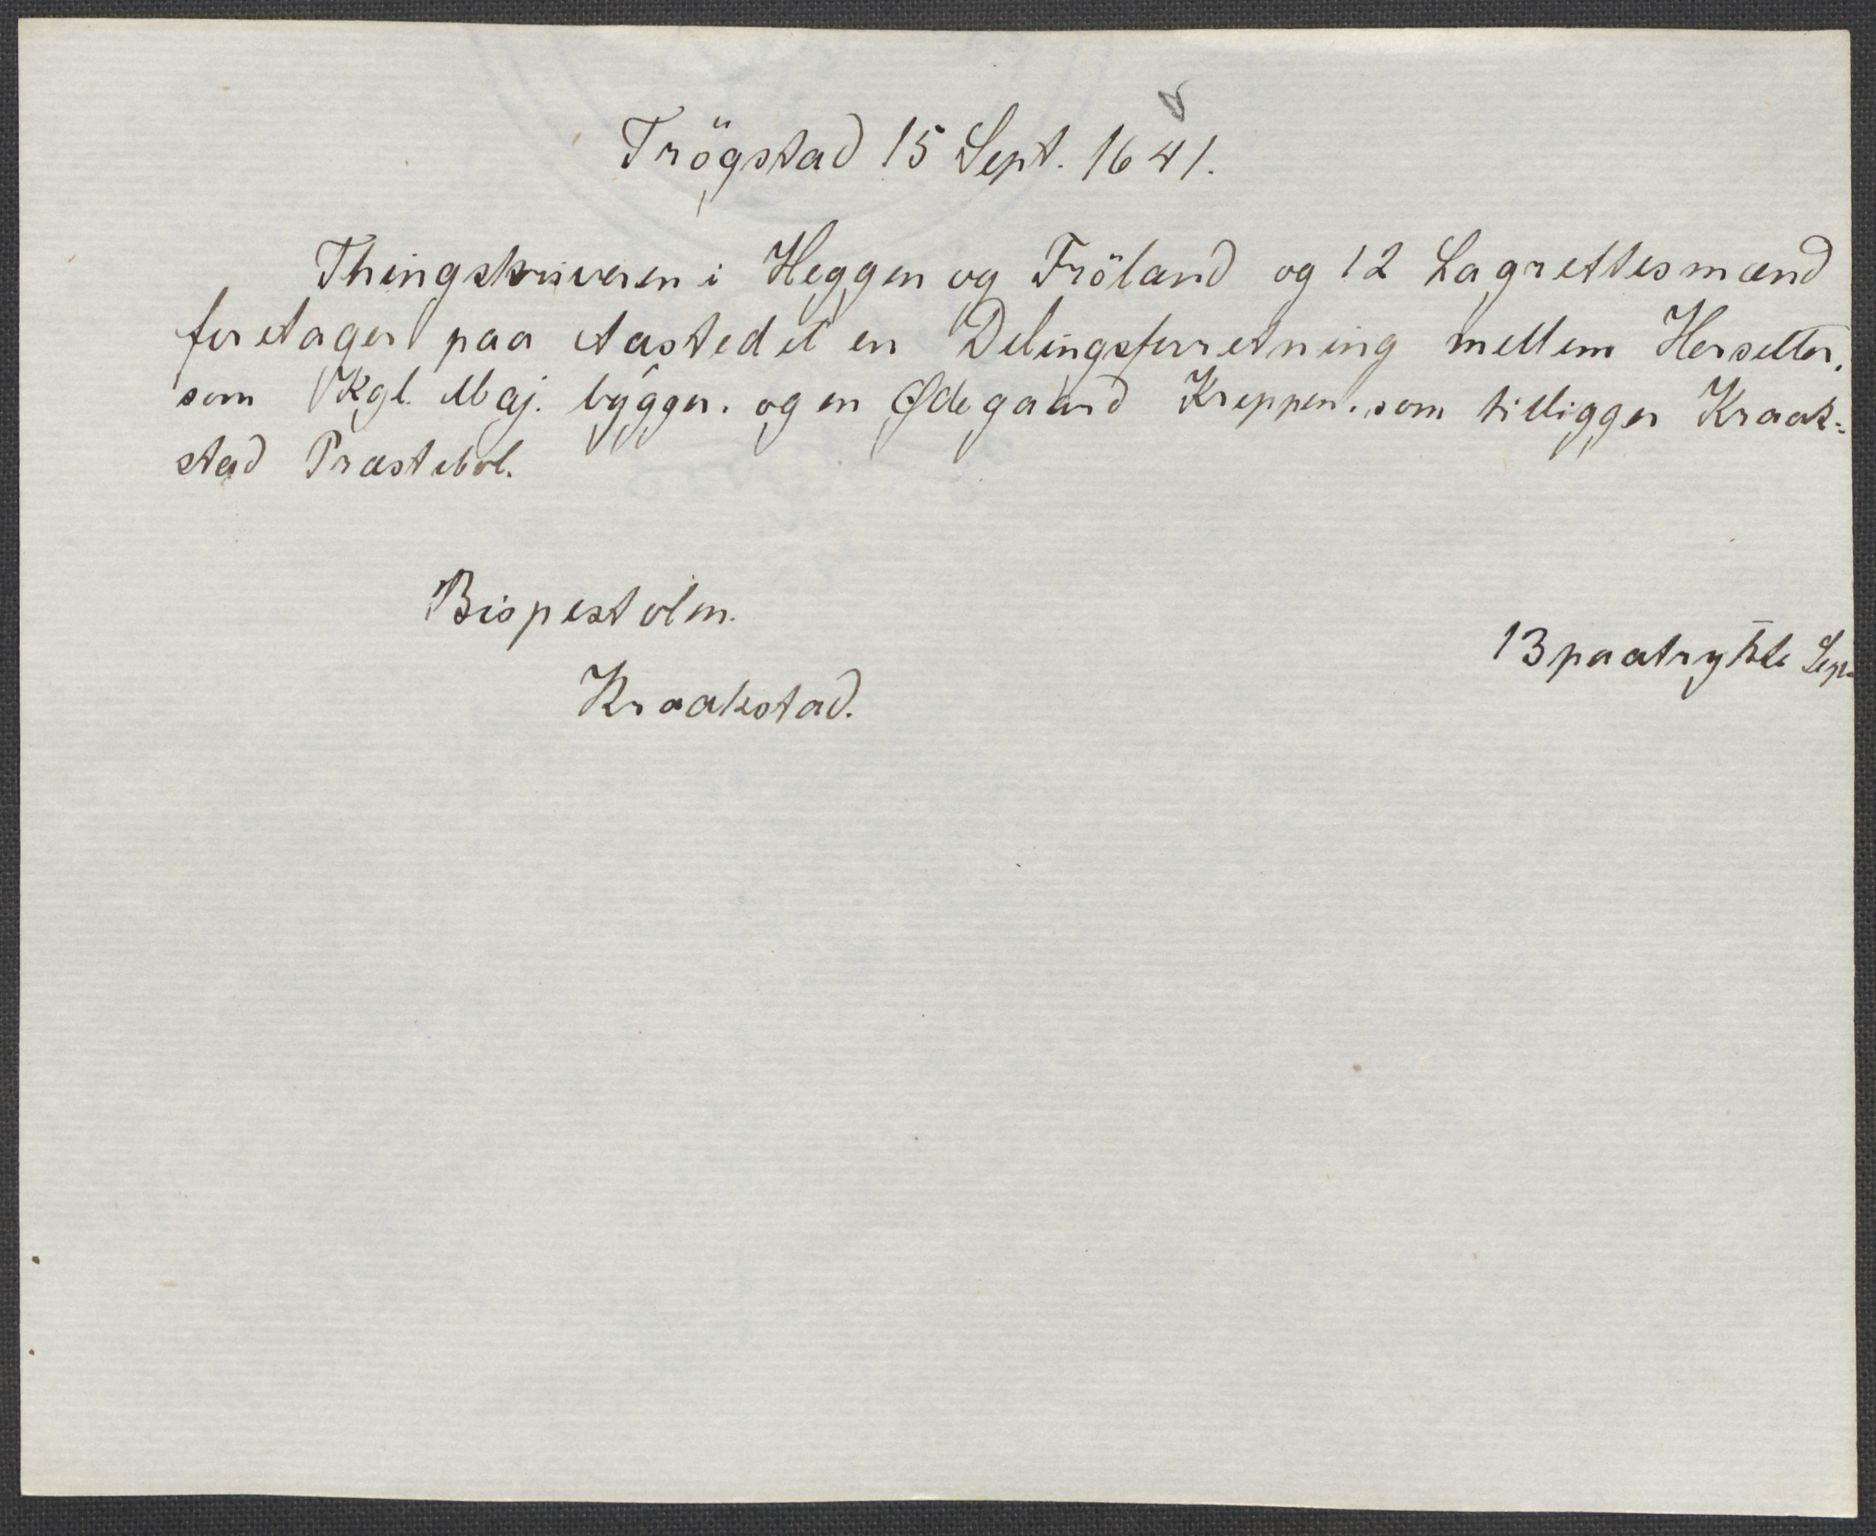 Trögstad 15 Sept. 1641.
Thingskriveren i Heggen og Fröland og 12 Lagrettesmænd
foretager paa Aastedet en Delingsforretning mellem Herseter,
som Kgl. Maj. bygger. og en Ødegaard Kreppen. som tilligger Kraak-
stad Præstebol.
Bispestolen.
Kraakstad.
13 paatrykte